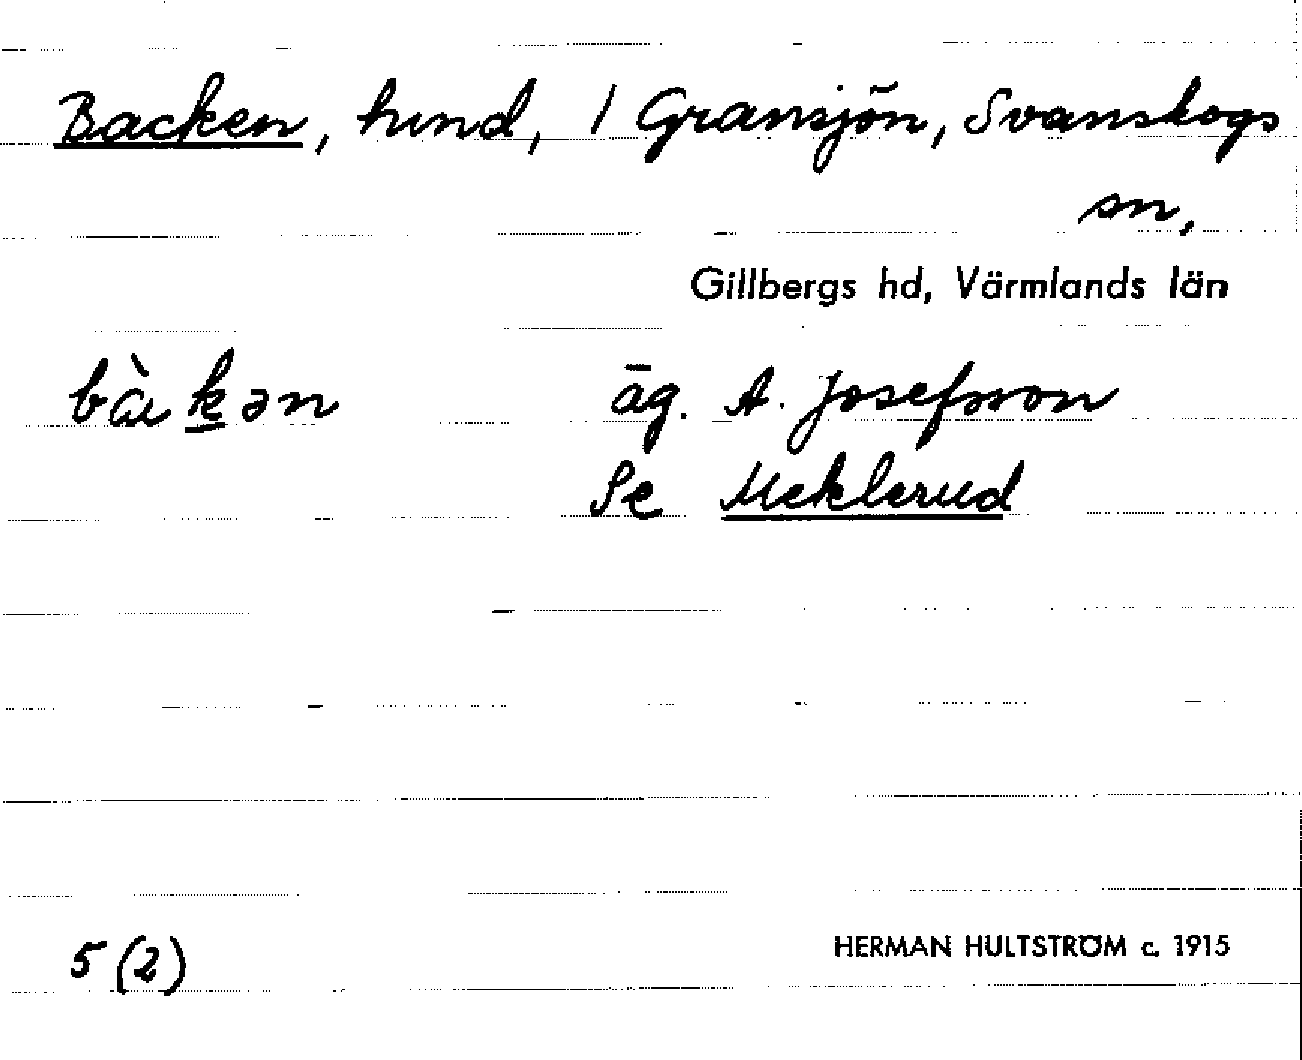 Backen, hmnd, 1 Gransjön, Svanskogs
sn,
Gillbergs hd, Värmlands län
bàkən äg. A. Josefsson
Se Meklerud
5 (2) HERMAN HULTSTRÖM c. 1915